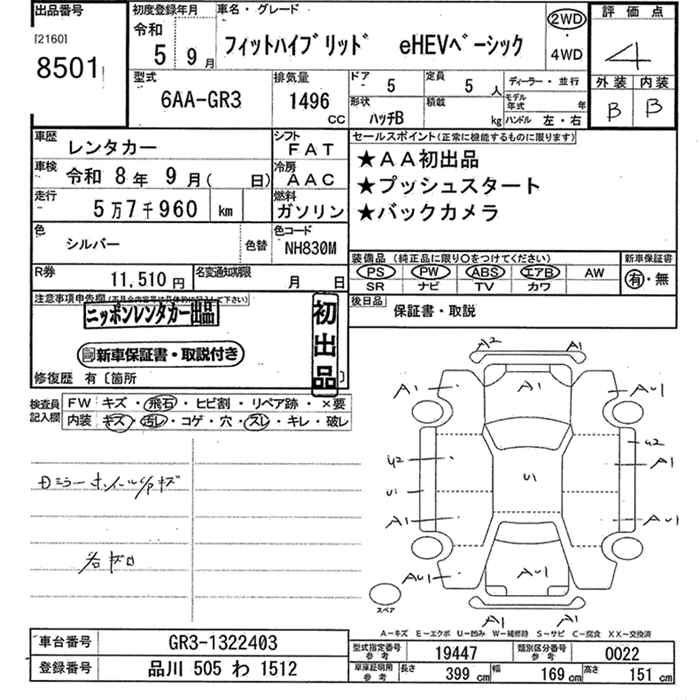 出品番号
[2160]
8501
初度登録年月
令和
5 9月
車名・グレード
フィットハイブリッド eHEVベーシック
2WD
・
4WD
評価点
4
外装 内装
B B
型式
6AA-GR3
排気量
1496
cc
ドア
5
定員
5人
形状
ハッチB
積載
kg
ディーラー・並行
モデル年式 年
ハンドル 左・右
車歴
レンタカー
シフト
FAT
車検
令和 8年 9月( 日)
冷房
AAC
走行
5万7千960 km
燃料
ガソリン
色
シルバー
色替
色コード
NH830M
R券
11,510円
名変通知期限
月 日
セールスポイント(正常に機能するものに限ります)
★AA初出品
★プッシュスタート
★バックカメラ
装備品 (純正品に限り○をつけてください)
PS PW ABS エアB AW
SR ナビ TV カワ
新車保証書
有・無
後日品
保証書・取説
注意事項申告欄
ニッポンレンタカー出品
新車保証書・取説付き
初出品
修復歴 有〔箇所
検査員記入欄
FW キズ・飛石・ヒビ割・リペア跡・×要
内装 キズ・汚レ・コゲ・穴・スレ・キレ・破レ
A2 A1
A1 A1 AU1
U2 U2
A1
U1 U1
A1 AU1
AU1 AU1 A1
A1 A1
スペア
A-キズ E-エクボ U-凹み W-補修跡 S-サビ C-腐食 XX-交換済
車台番号
GR3-1322403
型式指定番号
参考
19447
類別区分番号
参考
0022
登録番号
品川 505 わ 1512
車庫証明用
参考
長さ 399cm 幅 169cm 高さ 151cm